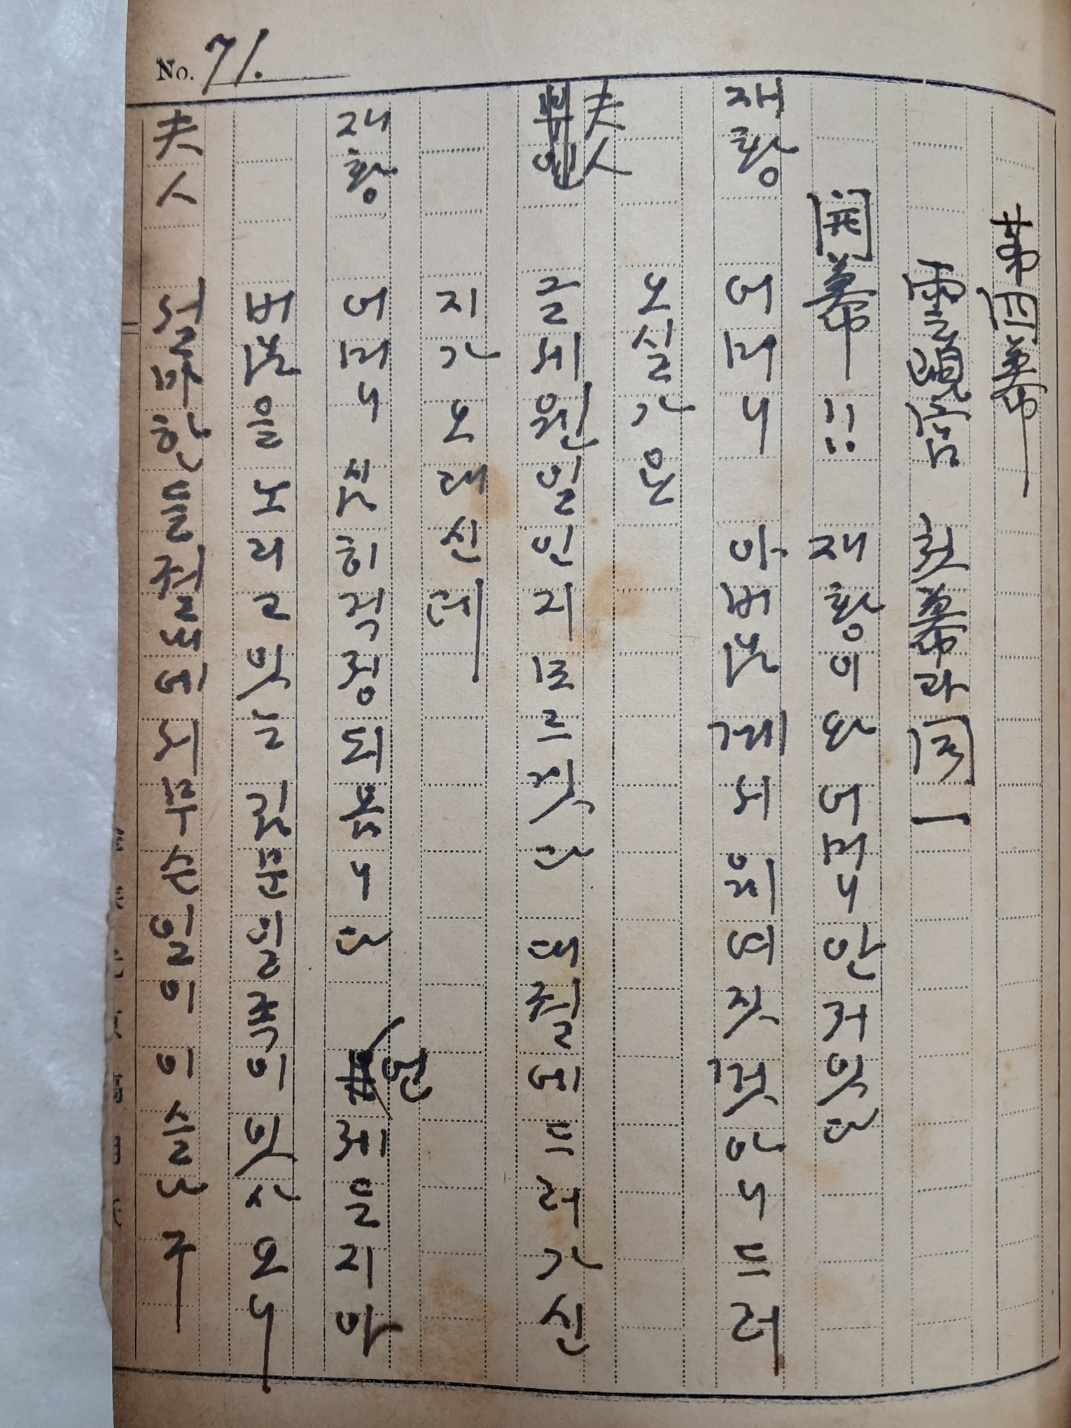 No. 71.
第四幕
雲峴宮 첫幕과 同一
開幕 :: 재황이와 어머니 안저잇다
재황 어머니 아버님게서 왜 여짓껏 아니드러
오실가요
夫人 글세 원일인지 모르깃다 대궐에 드러가신
지가 오래신데
재황 어머니 심히 걱정되옵니다 언제든지 아
버님을 노리고 잇는 김문일족이 잇사오니
夫人 설마한들 궐내에서 무슨일이 이슬나구